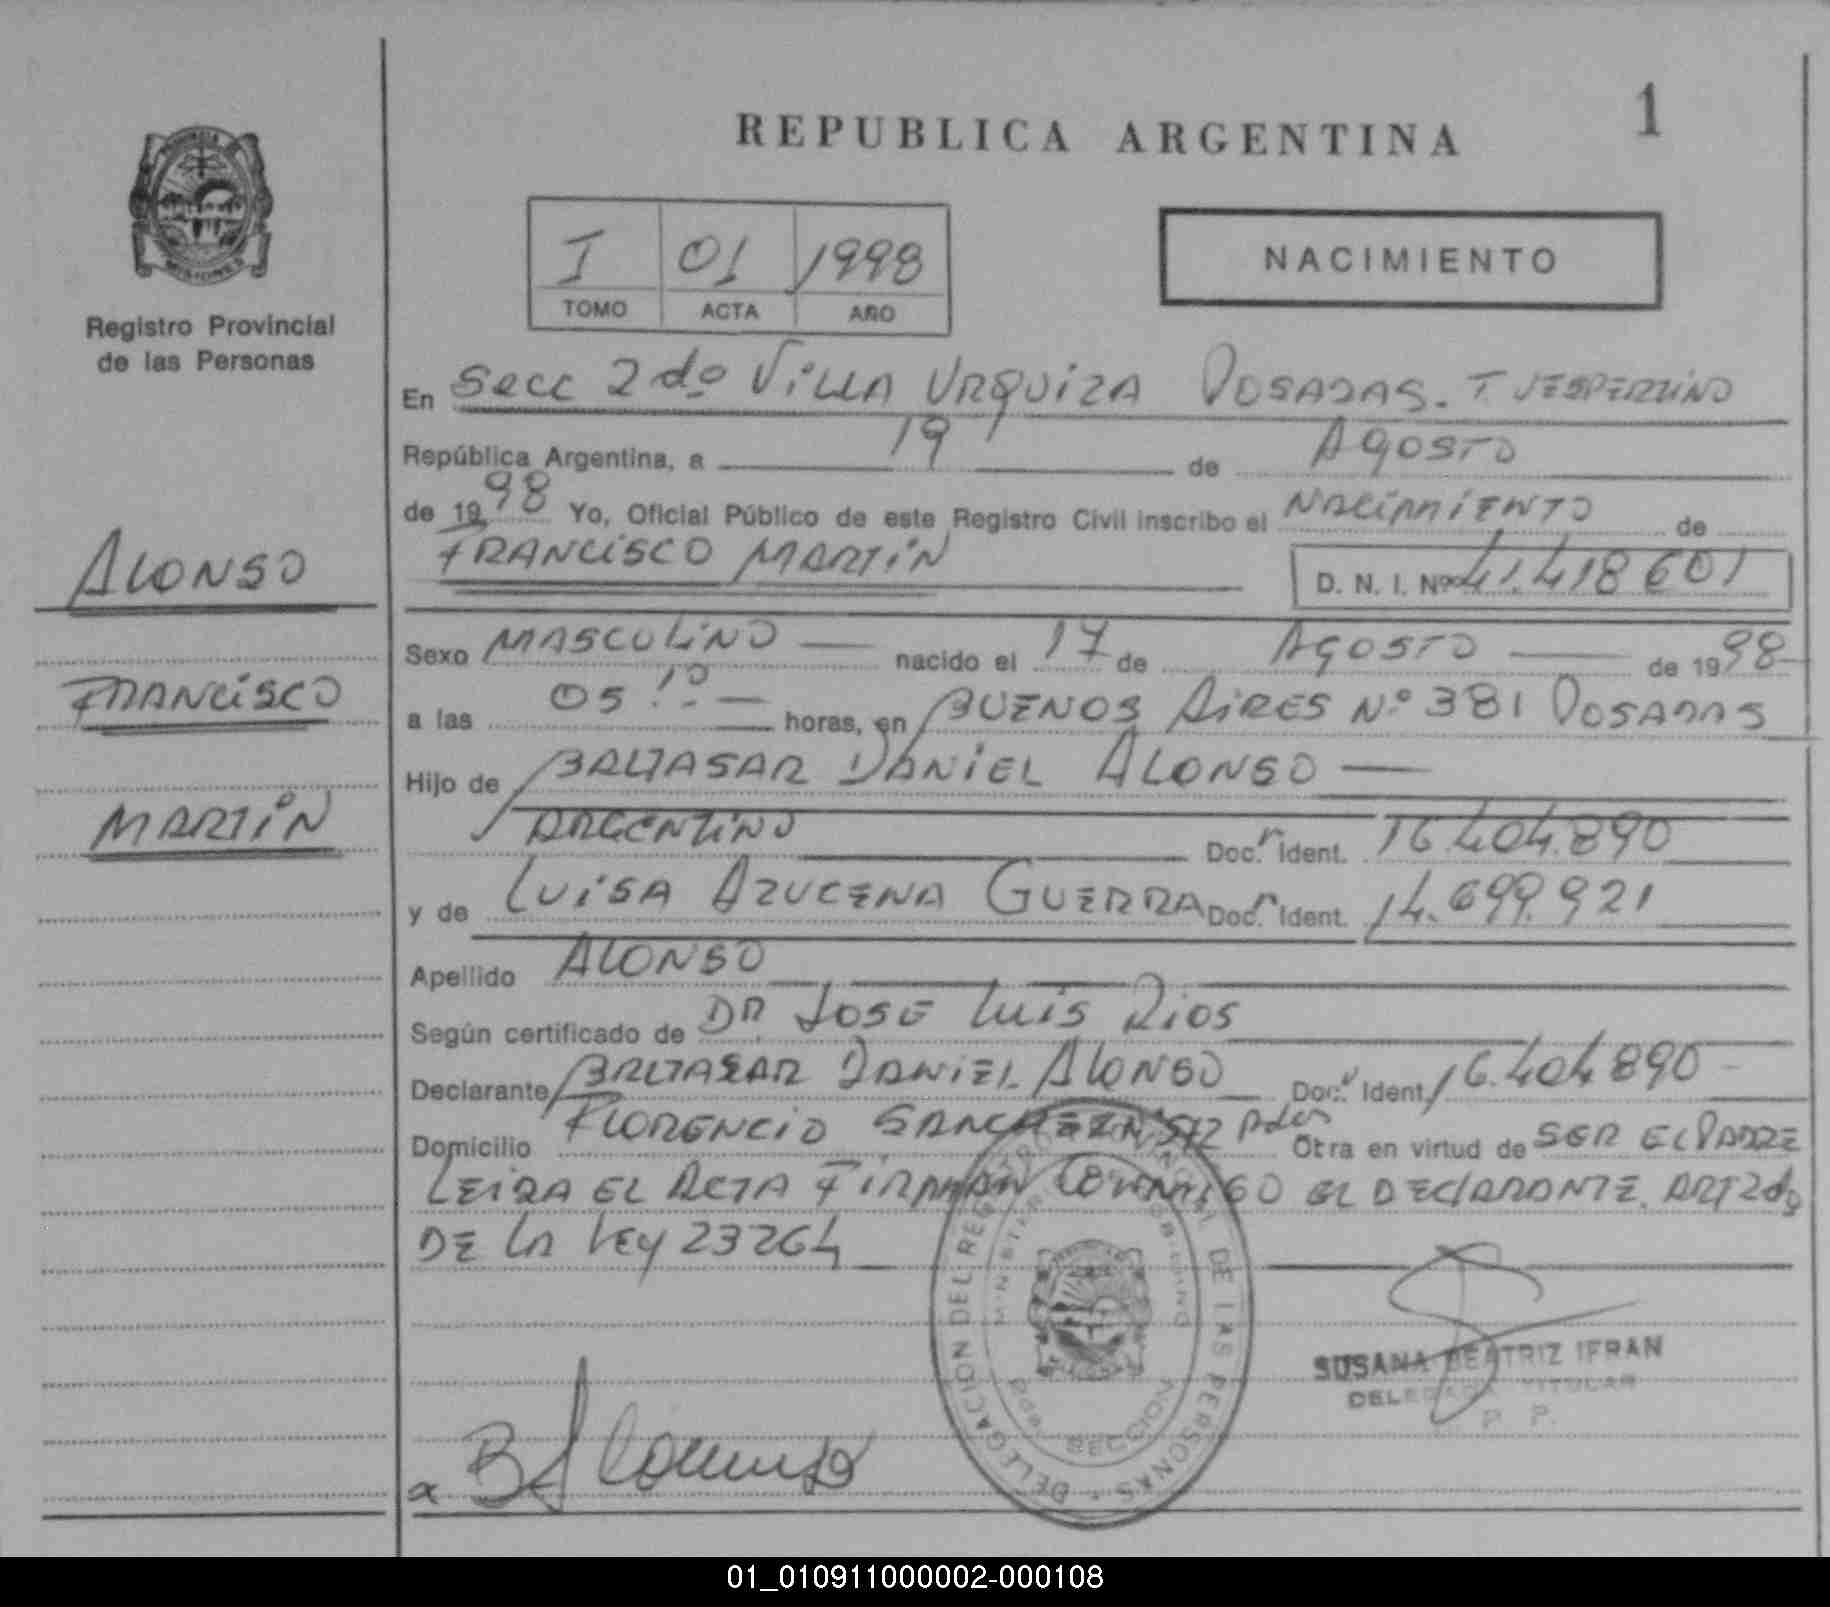 1
REPUBLICA ARGENTINA
PROVINCIA
MISIONES
Registro Provincial
de las Personas
I 01 1998
TOMO ACTA AÑO
NACIMIENTO
En Secc 2do Villa Urquiza Posadas. T. Vespertino
República Argentina, a 19 de Agosto
de 1998 Yo, Oficial Público de este Registro Civil inscribo el Nacimiento de
FRANCISCO MARTIN
D. N. I. Nº 41.418601
ALONSO
FRANCISCO
MARTIN
Sexo MASCULINO nacido el 17 de AGOSTO de 1998
a las 05:10 horas, en BUENOS AIRES Nº 381 POSADAS
Hijo de BALTASAR DANIEL ALONSO
ARGENTINO Doc. Ident. 16.404.890
y de LUISA AZUCENA GUERRA Doc. Ident. 14.699.921
Apellido ALONSO
Según certificado de DR. JOSE LUIS RIOS
Declarante BALTASAR DANIEL ALONSO Doc. Ident. 16.404.890
Domicilio FLORENCIO SANCHEZ Nº 512 Pdas Otra en virtud de SER EL PADRE
LEIDA EL ACTA FIRMAN CONMIGO EL DECLARANTE. ART 2do
DE LA LEY 23264
DELEGACION DEL REGISTRO PROVINCIAL DE LAS PERSONAS
MINISTERIO DE GOBIERNO
2da. SECCION
SUSANA BEATRIZ IFRAN
DELEGADA TITULAR
P. P.
01_010911000002-000108